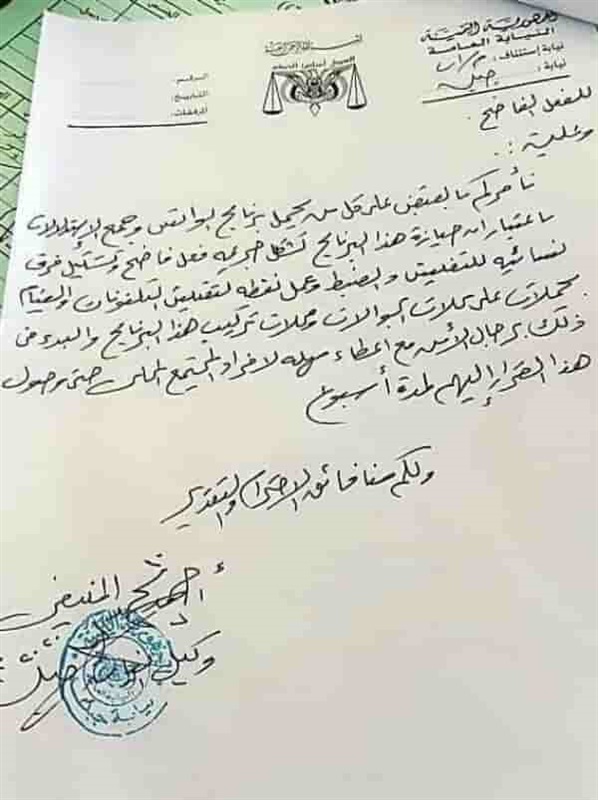 الجمهورية اليمنية
النيابة العامة
نيابة إستئناف: م/ اب
نيابة: جبلة
الرقم:
التاريخ:
المرفقات:
للفعل الفاضح.
وعليه:.
نأمركم بالقبض على كل من يحمل برنامج ابو التس وجمع الاستدلالات
باعتبار ان حيازة هذا البرنامج تشكل جريمة فعل فاضح وتشكيل فرق
نسائية للتفتيش والضبط وعمل نقطة لتفتيش التلفونات والقيام
بحملات على محلات الجوالات ومحلات تركيب هذا البرنامج والبدء في
ذلك برجال الأمن مع اعطاء مهله لافراد المجتمع المحلي حتى وصول
هذا القرار إليهم لمدة أسبوع
ولكم منا فائق الاحترام والتقدير
أحمد
وكيل نيابة جبلة
نيابة جبلة